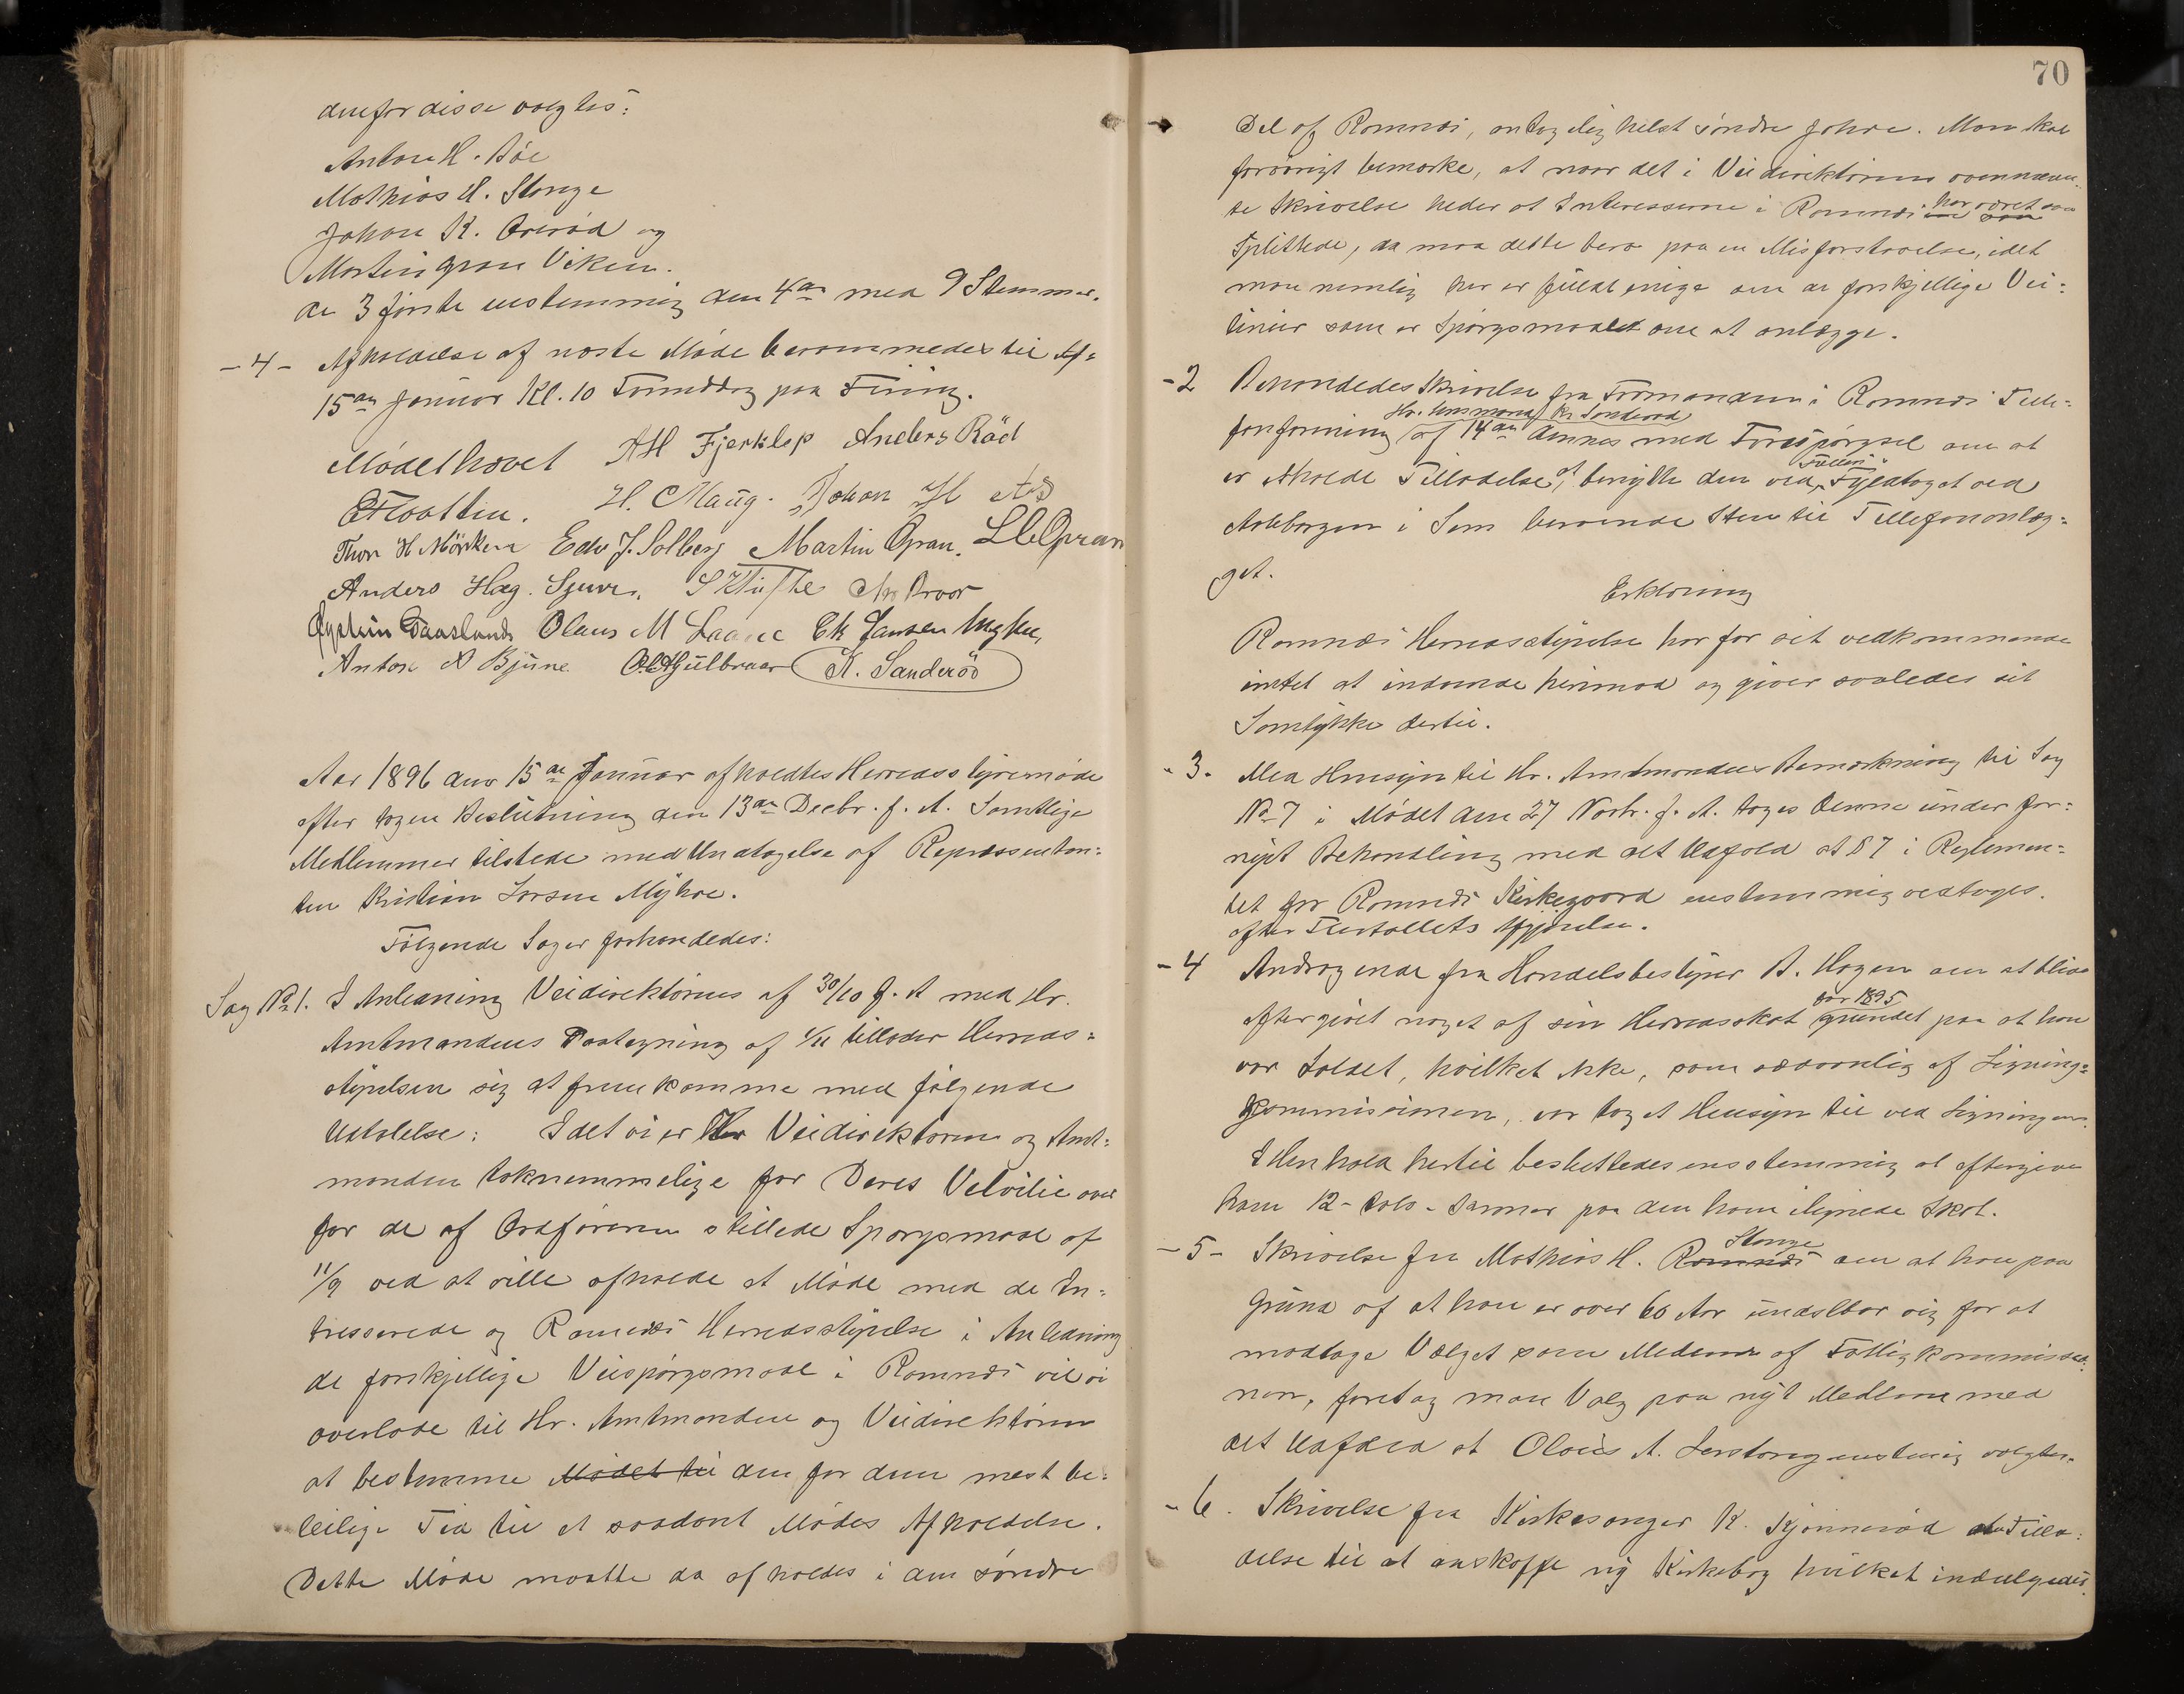 denfor disse valgtes:
Anton H. Böe
Mathias H. Stange
Johan K. Overød og
Martin Gran Viken.
de 3 første enstemmig den 4de med 9 Stemmer.
- 4 - Afholdelse af næste Møde berammedes til
15de Januar Kl. 10 Formiddag paa Firing.
Mødet hævet AH Fjerklep Anders Röd
H. Maug. Johan H Aas
Thor H Mörken Edv J. Solberg Martin Gran. L C Gran
Anders Hag. Sjuve.
Øystein Daasland Olaus M Laane Ek Jansen
Anton A Bjune O. Gulbraar K. Sanderöd
Aar 1896 den 15de Januar afholdtes Herredsstyremøde
efter tagen Beslutning den 13de Decbr. f. A. Samtlige
Medlemmer tilstede med Undtagelse af Repræsentan=
ten Kristian Larsen Myhre.
Følgende Sager forhandledes:
Sag No 1. I Anledning Veidirektørens af 30/10 f. A med Hr.
Amtmandens Paategning af 1/11 tillader Herreds=
styrelsen sig at fremkomme med følgende
Udtalelse: Idet vi er Hr Veidirektøren og Amt=
manden taknemmelige for Deres Velvilie over
for de af Ordføreren stillede Spørgsmaal af
11/9 ved at ville afholde et Møde med de In=
tresserede og Ramnæs Herredsstyrelse i Anledning
de forskjellige Veispørgsmaal i Ramnæs vil vi
overlade til Hr. Amtmanden og Veidirektøren
at bestemme Mødet til den for dem mest be=
leilige Tid til et saadant Mødes Afholdelse.
Dette Møde maatte da afholdes i den søndre
70
Del af Ramnæs, antagelig helst søndre Johre. Man skal
forøvrigt bemærke, at naar det i Veidirektørens ovennævn=
te Skrivelse heder at Interesserne i Ramnæs har været saa
splittede, da maa dette bero paa en Misforstaaelse, idet
man nemlig her er fuldt enige om de forskjellige Vei=
linier som er Spørgsmaalet om at anlægge.
- 2 Behandledes Skrivelse fra Formanden i Ramnæs Tele=
Hr. Lensmand Kr Sanderød
fonforening af 14de dennes med Forespørgsel om at
erholde Tilladelse at benytte den ved Fyldtaget ved
Aaleborgen i Sem beroende Sten til Telefonanlæg=
get.
Erklæring
Ramnæs Herredsstyrelse har for sit vedkommende
intet at indvende herimod og giver saaledes sit
Samtykke dertil.
- 3 - Med Hensyn til Hr. Amtmandens Bemærkning til Sag
No 7 i Mødet den 27 Novbr. f. A. toges denne under for=
nyet Behandling med det Udfald at § 7 i Reglemen=
tet for Ramnæs Kirkegaard enstemmig vedtoges.
efter Flertallets Afgjørelse.
- 4 Andragende fra Handelsbestyrer A. Hagen om at blive
for 1895
eftergivet noget af sin Herredsskat grundet paa at han
var , hvilket ikke, som sædvanlig af Ligning=
kommissionen, var taget Hensyn til ved Ligningen.
I Henhold hertil besluttedes enstemmig at eftergive
ham 12 - tolv - Kroner paa den ham ilignede Skat.
- 5 - Skrivelse fra Mathias H. Ramnæs Stange om at han paa
Grund af at han er over 60 Aar undslaar sig for at
modtage Valget som Medlem af Fattigkommissio=
nen, foretog man Valg paa nyt Medlem med
det Udfald at Olaus A. Lerstang enstemmig valgtes.
- 6. Skrivelse fra Kirkesanger K. Kjønnerød Tilla=
delse til at anskaffe ny Kirkebog hvilket indvilgedes.